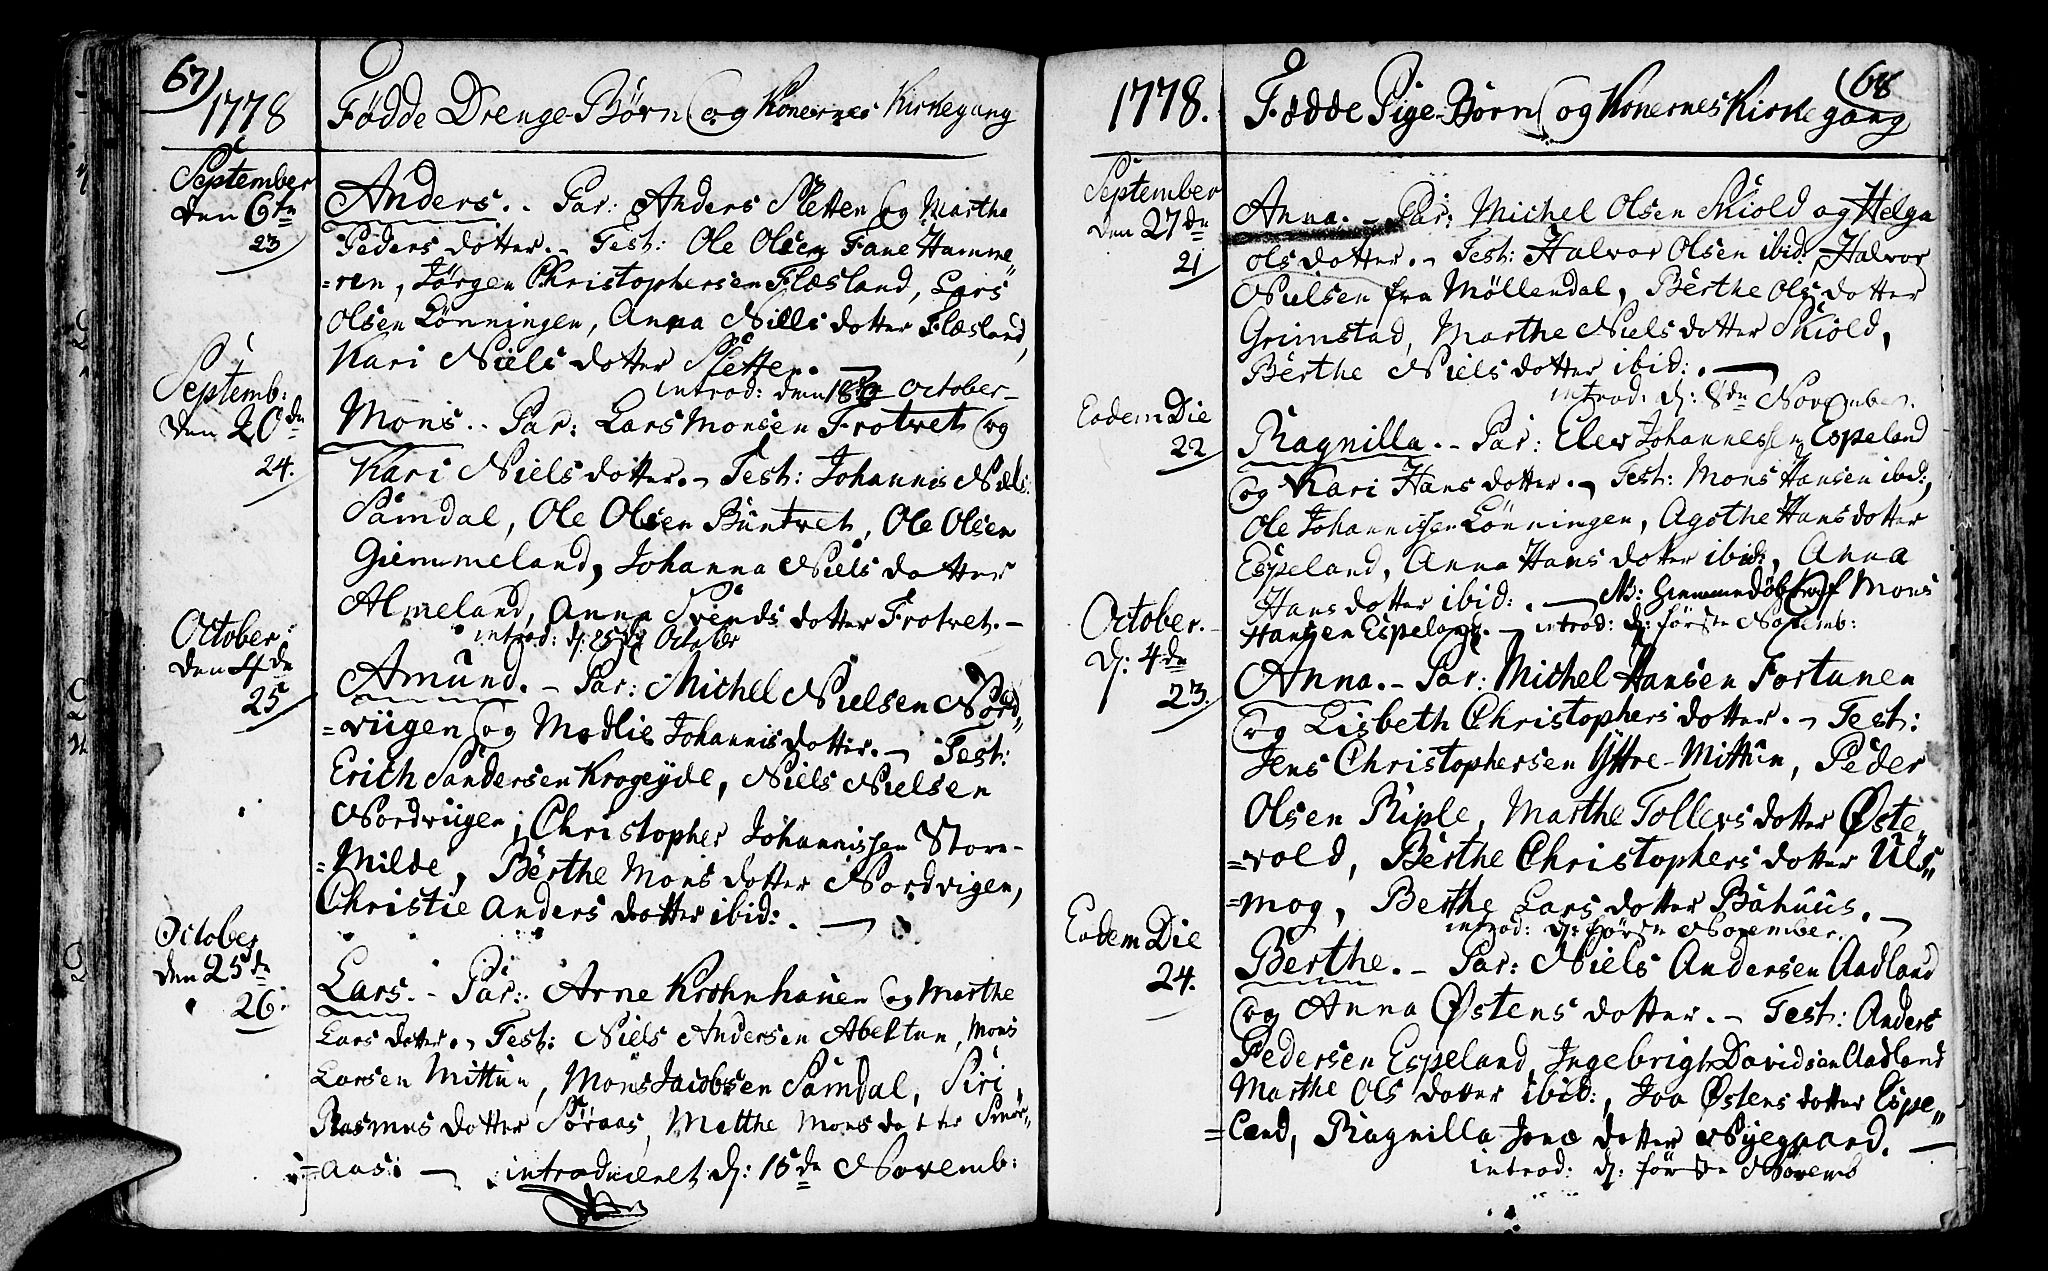 67)
1778
Fødde Drenge-Børn og Konernes Kirkegang
September
den 6te
23
Anders. - Par: Anders Sletten og Martha
Peders dotter. - Test: Ole Olsen Fane Hamme
=ren, Jørgen Christophersen Flæsland, Lars
Olsen Lønningen, Anna Niels dotter Flæsland,
Kari Niels dotter Sletten. -
introd: den 18de October -
Septemb:
den 20de
24.
Mons. - Par: Lars Monsen Frotvet og
Kari Niels dotter. - Test: Johannis Niels:
Samdal, Ole Olsen Buntvet, Ole Olsen
Giemmeland, Johanna Niels dotter
Almeland, Anna Svends dotter Frotvet. -
introd: d: 25de October
October
den 4de
25
Amund. - Par: Michel Nielsen Nord"
=viigen og Madlie Johannis dotter. - Test:
Erich Sandersen Krogeyde, Niels Nielsen
Nordviigen, Christopher Johannissen Store-
=Milde, Berthe Mons dotter Nordvigen,
Christie Anders dotter ibid: . -
October
den 25de
26.
Lars. - Par: Arne Krohnhauen og Marthe
Lars dotter. - Test: Niels Andersen Abeltun, Mons
Larsen Mittun, Mons Jacobsen Samdal, Siri
Rasmus dotter Søraas, Marthe Mons dotter Smør"
=aas: - introduceret d: 15de Novemb:
68
1778.
Fødde Pige-Børn og Konernes Kirkegang
September
den 27de
21
Anna. - Par: Michel Olsen Skiold og Helga
Ols dotter. - Test: Halvor Olsen ibid:, Halvor
Nielsen fra Møllendal, Berthe Ols dotter
Grimstad, Marthe Niels dotter Skiold,
Berthe Niels dotter ibid: . -
introd: d: 8de November.
Eodem Die
22
Ragnilla. - Par: Elev Johannessen Espeland
og Kari Hans dotter. - Test: Mons Hansen ibid:,
Ole Johannissen Lønningen, Agothe Hans dotter
Espeland, Anna Hans dotter ibid:, Anna
Hans dotter ibid: . - NB: Hiemmedøbt af Mons
Hansen Espeland. - introd: d: første Novemb:
October.
d: 4de
23.
Anna. - Par: Michel Hansen Fortunen
og Lisbeth Christophers dotter. - Test:
Jens Christophersen Yttre-Mittun, Peder
Olsen Riple, Marthe Tollevs dotter Øste
=vold, Berthe Christophers dotter Ulds"
=mog, Berthe Lars dotter Bahuus. -
introd: d: første November.
Eodem Die
24.
Berthe. - Par: Niels Andersen Aadland
og Anna Østens dotter. - Test: Anders
Pedersen Espeland, Ingebrigt Davidsen Aadland
Marthe Ols dotter ibid:, Joa Østens dotter Espe"
=land, Ragnilla Jons dotter Nyegaard. -
introd: d: første Novemb